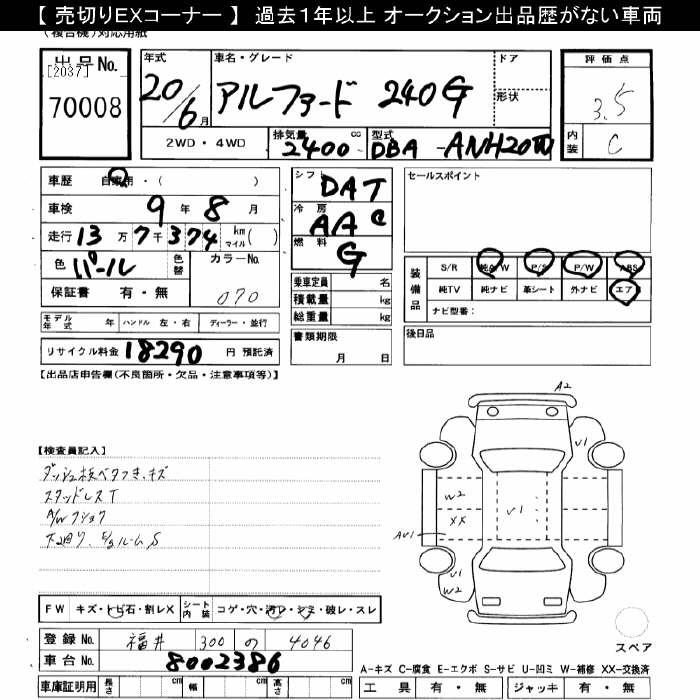 【 売切りEXコーナー 】 過去1年以上 オークション出品歴がない車両
(複合機)対応用紙
出品No.
[2037]
70008
年式 20/6月
車名・グレード アルファード 240G
ドア
形状
評価点 3.5
内装 C
2WD・4WD
排気量 2400 cc
型式 DBA-ANH20W
車歴 自家用・( )
車検 9年8月
走行 13万7千374 km マイル ( )
色 パール
色替
カラーNo. 070
保証書 有・無
シフト DAT
冷房 AAC
燃料 G
乗車定員 名
積載量 kg
総重量 kg
書類期限
月 日
セールスポイント
装備品
S/R 純A/W P/S P/W ABS
純TV 純ナビ 革シート 外ナビ エアB
ナビ型番:
後日品
モデル年式 年 ハンドル 左・右 ディーラー・並行
リサイクル料金 18290 円 預託済
【出品店申告欄(不良箇所・欠品・注意事項等)】
【検査員記入】
ダッシュ板ベタつき、キズ
スタッドレスT
A/Wクショク
下廻り、E/gルームS
A2
V1
W2
XX
V1
AU1
V1
W2
FW キズ・トビ石・割レX
シート内装 コゲ・穴・汚レ・シミ・破レ・スレ
登録No. 福井 300 の 4046
車台No. 8002386
車庫証明用 長さ cm 幅 cm 高さ cm
スペア
A-キズ C-腐食 E-エクボ S-サビ U-凹ミ W-補修 XX-交換済
工具 有・無 ジャッキ 有・無